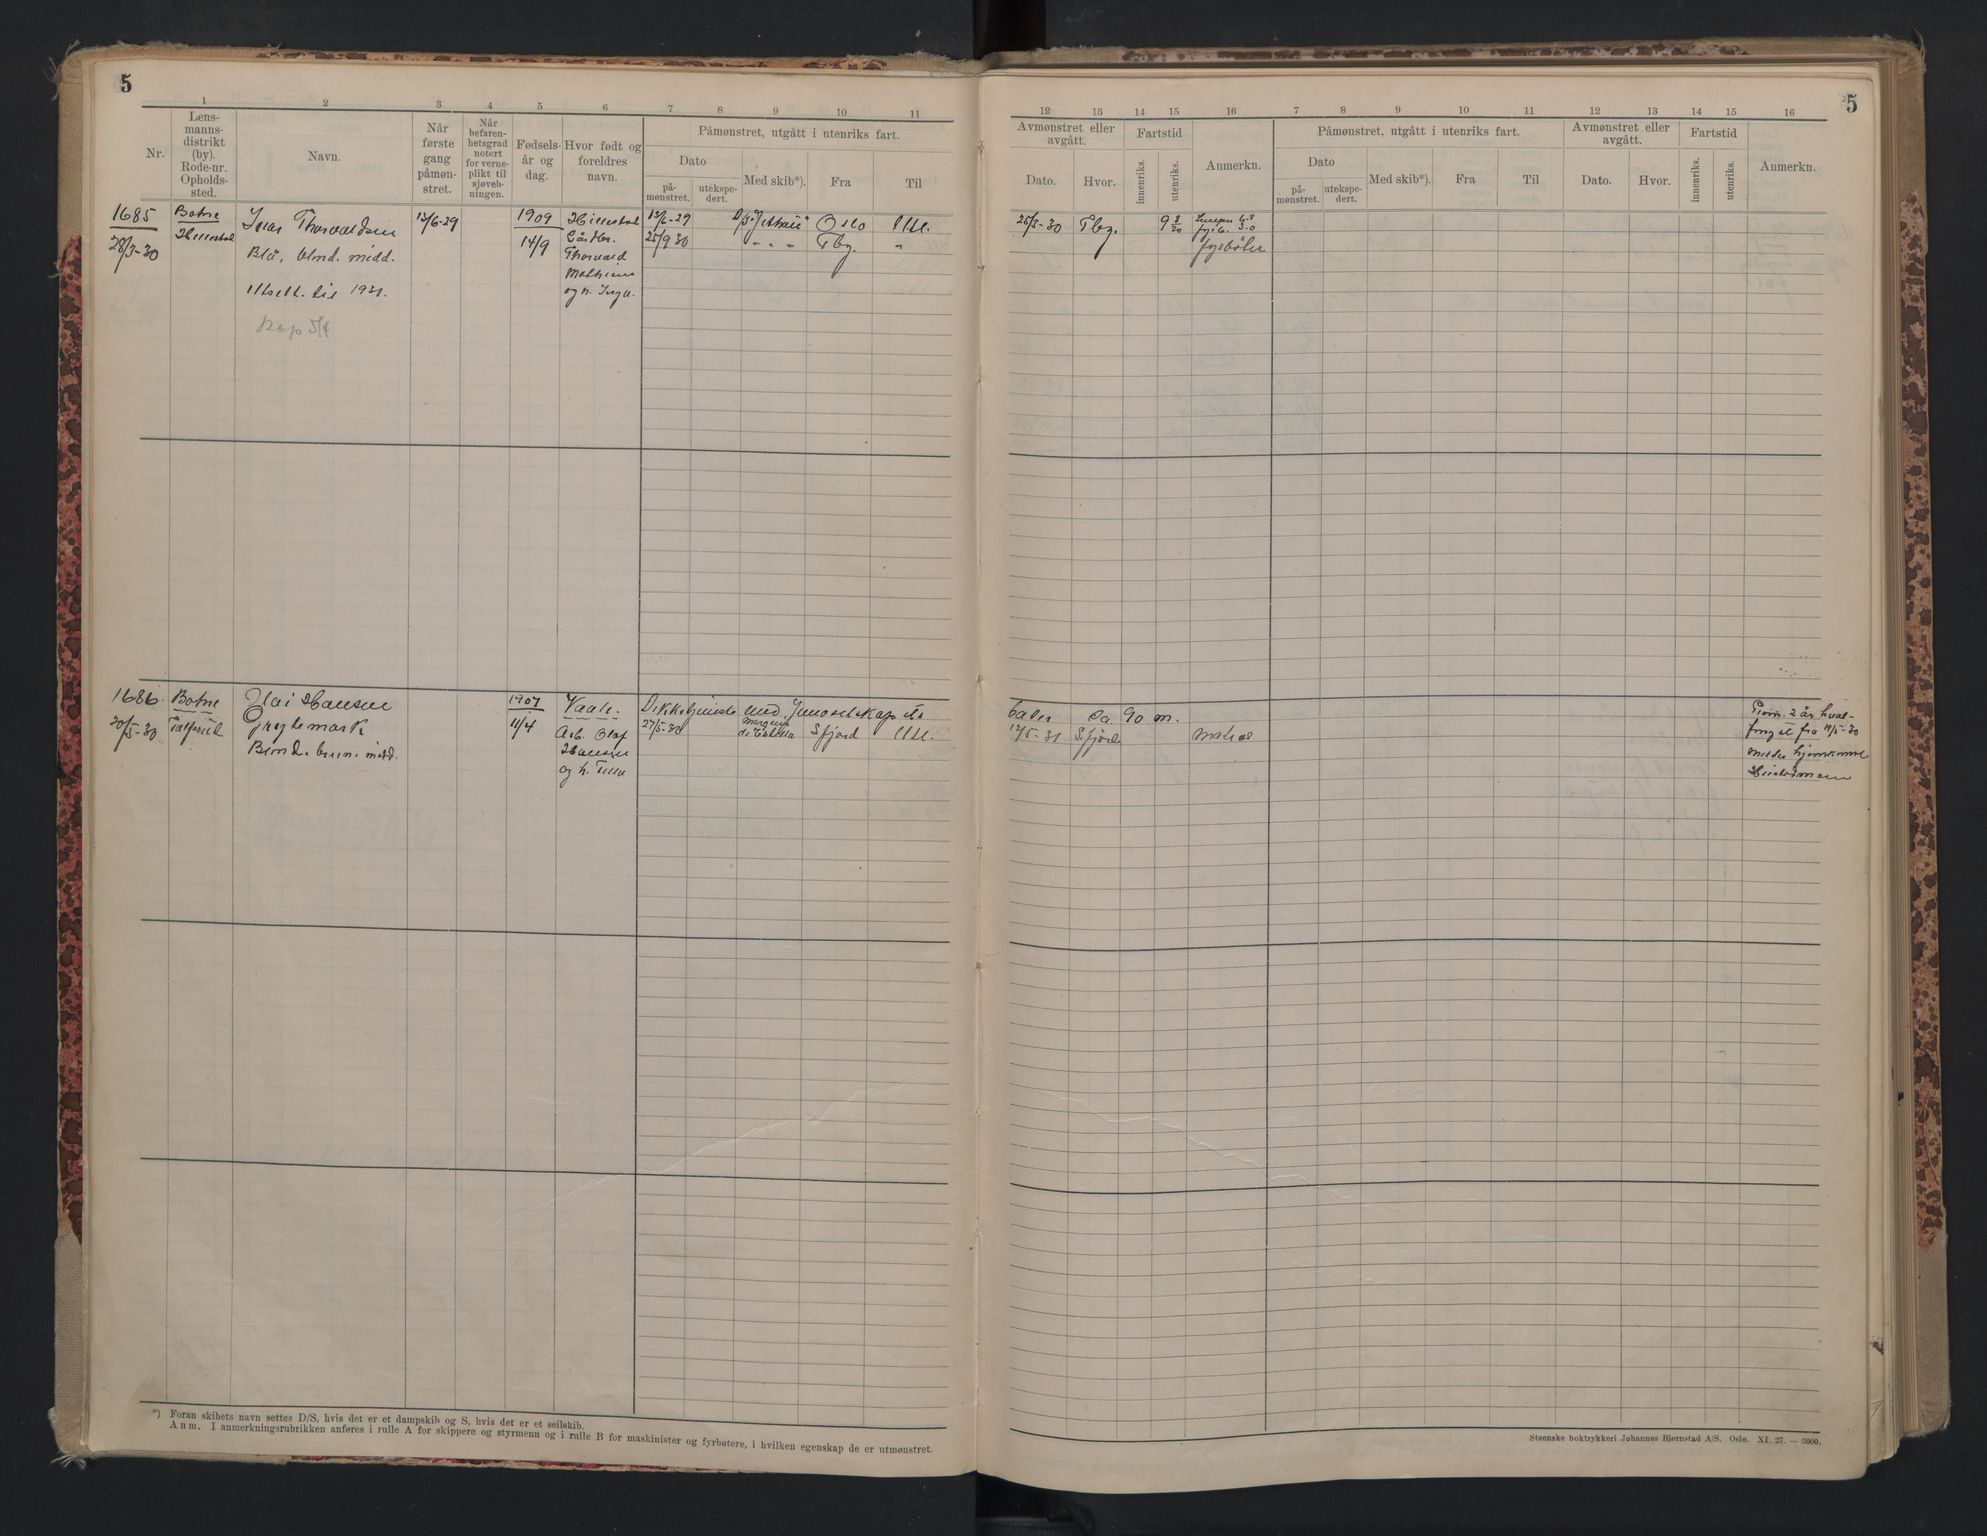 5
1 2 3 4 5 6 7 8 9 10 11
Nr.
Lens-
manns-
distrikt
(by).
Rode-nr.
Opholds-
sted.
Navn.
Når
første
gang
påmøn-
stret.
Når
befaren-
hetsgrad
notert
for verne-
plikt til
sjøveb-
ningen.
Fødsels-
år og
dag.
Hvor født og
foreldres
navn.
Påmønstret, utgått i utenriks fart.
Dato
på-
mønstret.
utekspe-
dert.
Med skib*).
Fra
Til
1685
28/3-30
Botne
Hillestad
Ivar Thorvaldsen
Blå, blnd. midd.
Utsatt til 1931.
13/6-29
1909
14/9
Hillestad
Gårdbr.
Thorvald
Mathisen
og h. Inga.
13/6-29 Oslo Utl.
25/9 30 " " " Tbg. "
1686
30/5-30
Botne
Olai Hansen
Grytemark
Blnd. brun. midd.
1907
11/4
Vaale.
Arb. Olaf
Hansen
og h.
27/5-30 S.fjord Utl.
*) Foran skibets navn settes D/S, hvis det er et dampskib og S, hvis det er et seilskib.
Anm. I anmerkningsrubrikken anføres i rulle A for skippere og styrmenn og i rulle B for maskinister og fyrbøtere, i hvilken egenskap de er utmønstret.
5
12 13 14 15 16 7 8 9 10 11 12 13 14 15 16
Avmønstret eller
avgått.
Dato.
Hvor.
Fartstid
innenriks.
utenriks.
Anmerkn.
Påmønstret, utgått i utenriks fart.
Dato
på-
mønstret.
utekspe-
dert.
Med skib*).
Fra
Til
Avmønstret eller
avgått.
Dato.
Hvor.
Fartstid
innenriks.
utenriks.
Anmerkn.
25/3-30 Tbg.
fyrbøter
ca. 90 m.
12/5-31 S.fjord matros
2 år hval-
fangst fra
meldt hjemkommet
Steenske boktrykkeri Johannes Bjørnstad A/S. Oslo. XI. 27. — 3000.